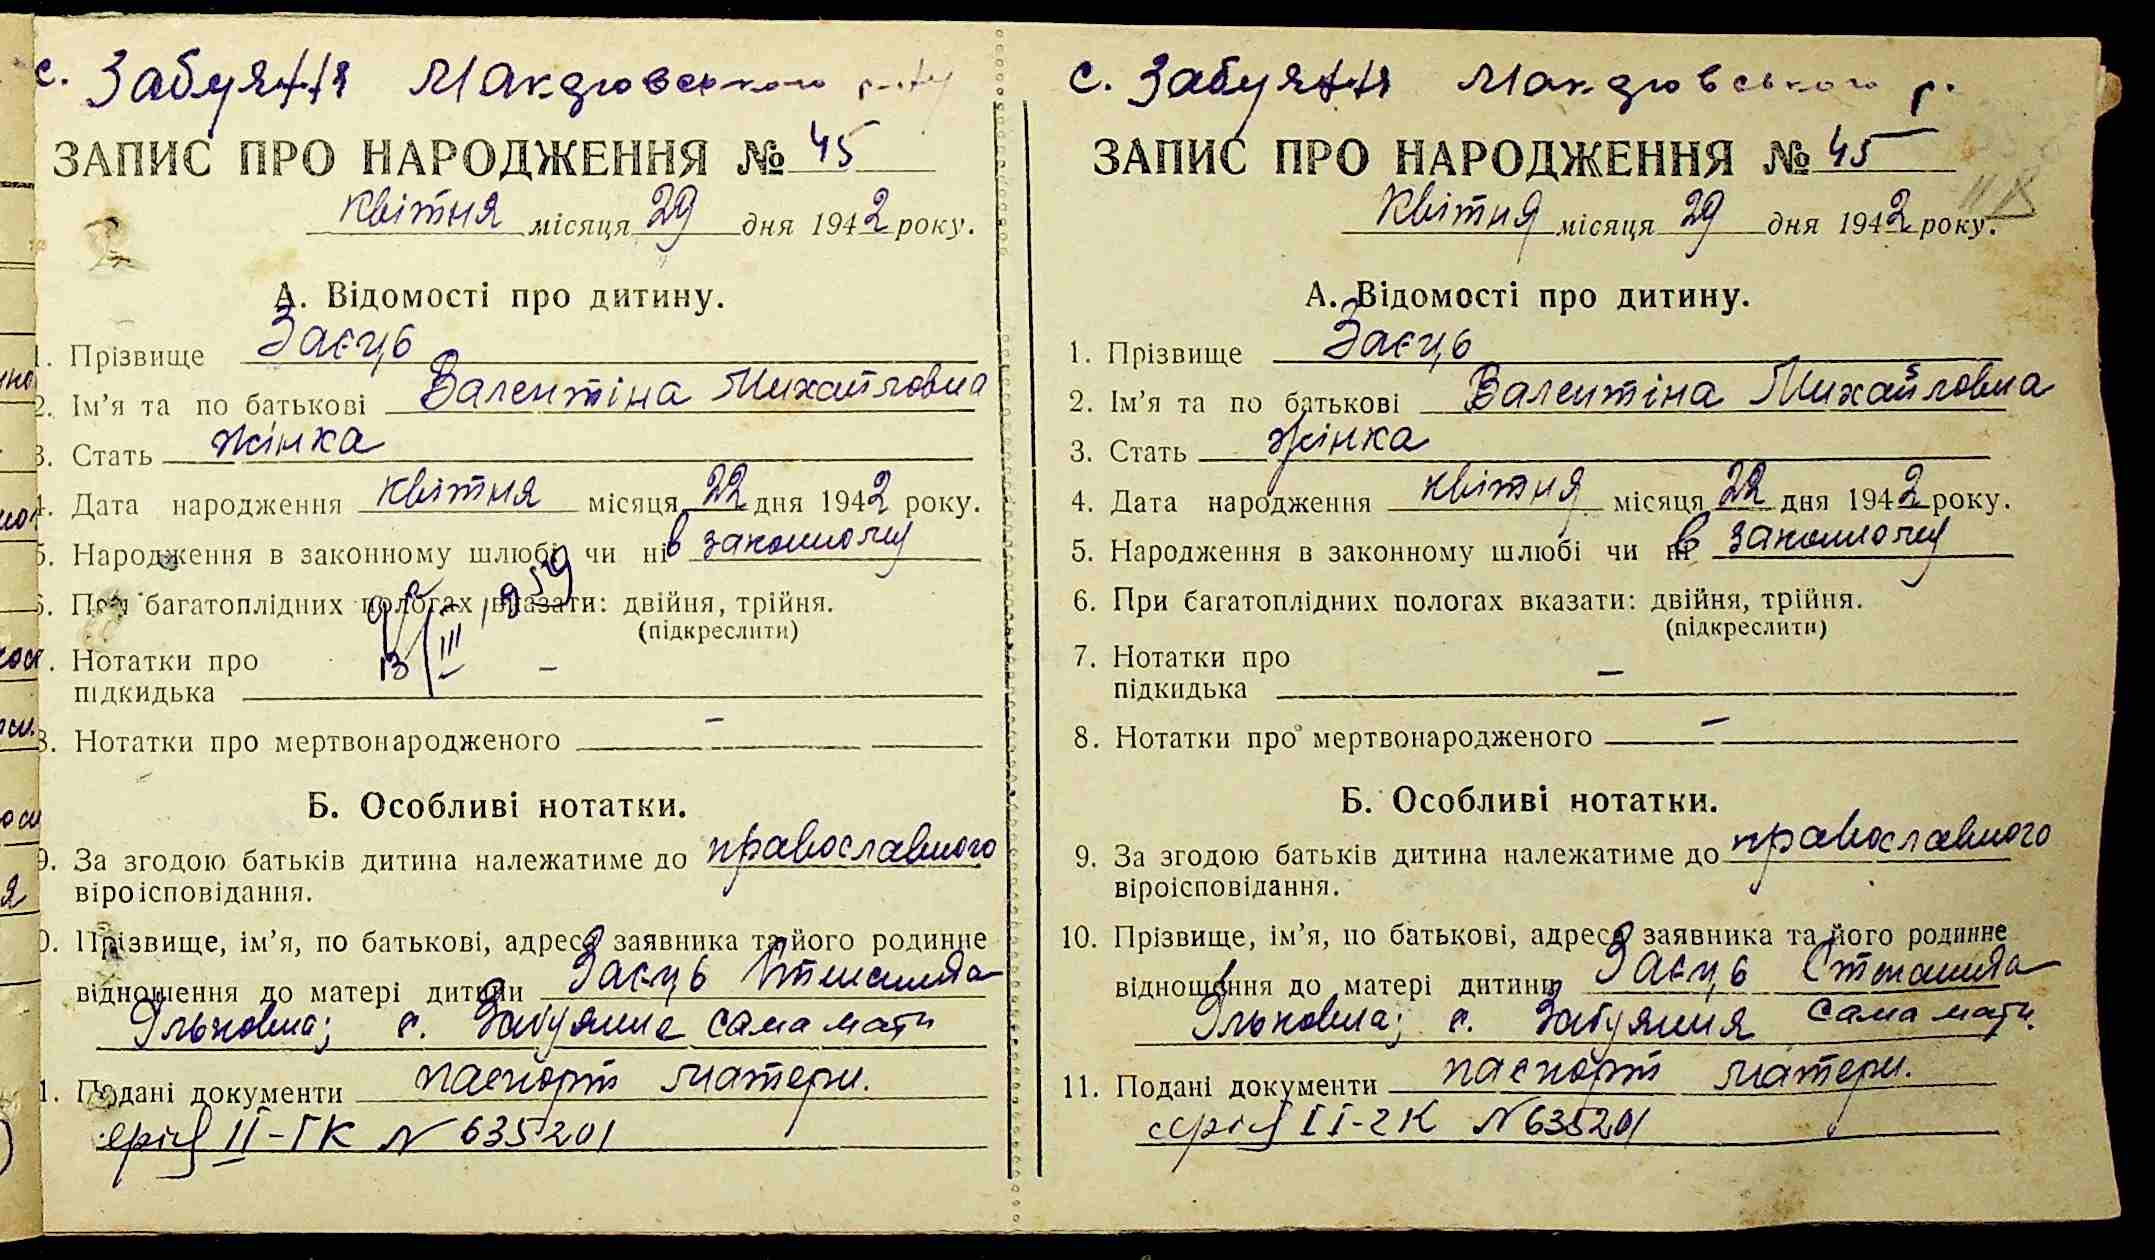 с. Забуяття Макдювського р-ну
ЗАПИС ПРО НАРОДЖЕННЯ № 45
квітня місяця 29 дня 1942 року.
А. Відомості про дитину.
1. Прізвище Заєць
2. Ім'я та по батькові Валентіна Михайловна
3. Стать жінка
4. Дата народження квітня місяця 22 дня 1942 року.
5. Народження в законному шлюбі чи ні в законному
6. При багатоплідних пологах вказати: двійня, трійня.
(підкреслити)
13/III 1959
7. Нотатки про
підкидька –
8. Нотатки про мертвонародженого –
Б. Особливі нотатки.
9. За згодою батьків дитина належатиме до православного
віроісповідання.
10. Прізвище, ім'я, по батькові, адреса заявника та його родинне
відношення до матері дитини Заєць
Ільковна; с. Забуянне сама мати
11. Подані документи паспорт матери.
серія II-ГК N 635201
с. Забуяття Макдювського р.
ЗАПИС ПРО НАРОДЖЕННЯ № 45
квітня місяця 29 дня 1942 року.
А. Відомості про дитину.
1. Прізвище Заєць
2. Ім'я та по батькові Валентіна Михайловна
3. Стать жінка
4. Дата народження квітня місяця 22 дня 1942 року.
5. Народження в законному шлюбі чи ні в законному
6. При багатоплідних пологах вказати: двійня, трійня.
(підкреслити)
7. Нотатки про
підкидька –
8. Нотатки про мертвонародженого –
Б. Особливі нотатки.
9. За згодою батьків дитина належатиме до православного
віроісповідання.
10. Прізвище, ім'я, по батькові, адреса заявника та його родинне
відношення до матері дитини Заєць Степанида
Ільковна; с. Забуяння сама мати.
11. Подані документи паспорт матери.
серія II-гК N 635201